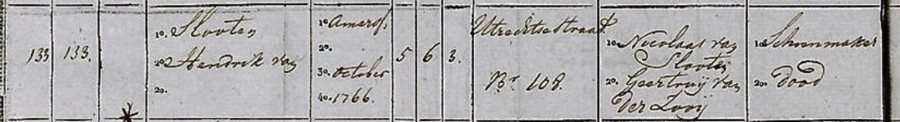 133 133.
1o. Slooten
2o Hendrik van
2o.
1o Amersf.
2o.
3o. October
4o. 1766.
5 6 3.
Utrechtsestraat
No. 108.
1o. Nicolaas van
Slooten
2o. Geertruij van
Der Zooij
1o Schoenmaker
2o. dood